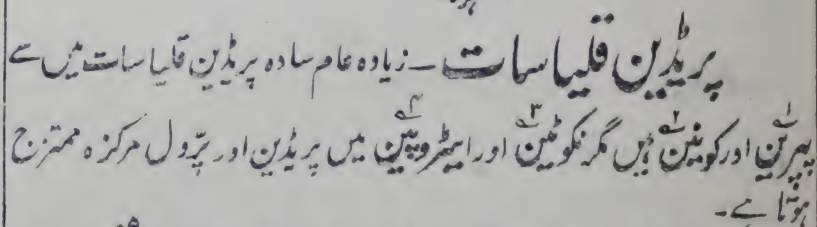 پریڈین قلیاسات ۔ زیادہ عام سادہ پریڈین قلیاسات میں سے
پیپرین۱ اور کونین۲ ہیں مگر نکوٹین۳ اور ایٹروپین۴ میں پریڈین اور پرّول مرکزہ ممتزج
ہوتا ہے۔